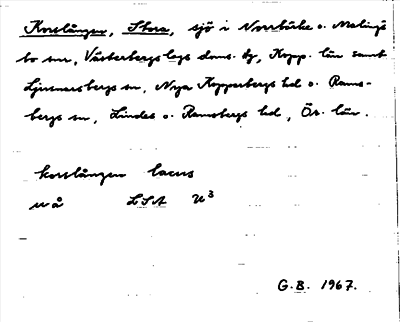 Korslången, Stora, sjö i Norrbärke o. Malings
bo snr, Västerbergslags doms. dg, Kopp. län samt
Ljusnarsbergs sn, Nya Kopparbergs hd o. Rams-
bergs sn, Lindes o. Ramsbergs hd, Ör. län.
korslången lacus
LSA U³
G.B. 1967.